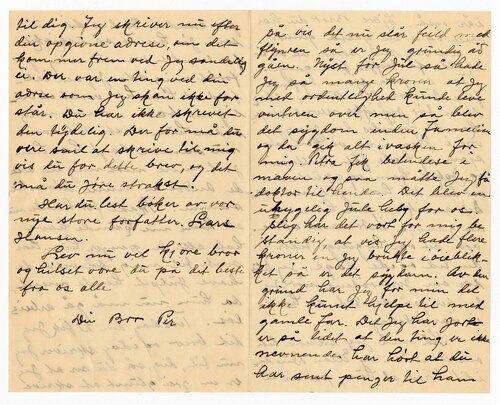 til dig. Jeg skriver nu efter
din opgivne adrese, om det
kommer frem ved Jeg sandelig
ei. Der var en ting ved din
adrse som Jeg skan ikke for
står. Du har ikke skrevet
den tydelig. Der for må du
vere snil at skrive til mig
vis du får dette brev, og det
må du jøre strakst.
Har du lest bøker av vor
nye store forfatter. Lars
Hansen.
Lev nu vel kjøre bror
og hilset vore du på det beste
fra os alle
Din Bror Per
på vis det nu slår feild med
flynren så er Jeg grundig åd
gåen. Nyst for Jul så hade
Jeg så mange kroner at Jeg
med ordentlighed kunde leve
vinteren over men så blev
det sygdom inden Familien
og da gik alt i vasken for
mig. Petra fik betendelse i
maven og son måtte Jeg få
doktor til hende. Det blev en
uhygelig Jule helg for os.
Slig har det vort for mig be
standig, at vis Jeg had flere
kroner en Jeg brukte i øieblik
ket så er det sygdom. Av den
grund har Jeg for min del
ikke kunet hjelpe til med
gamle far. Det Jeg har jort
er så lidet at den ting er ikke
nevnendes har hört at du
har sent penger til ham